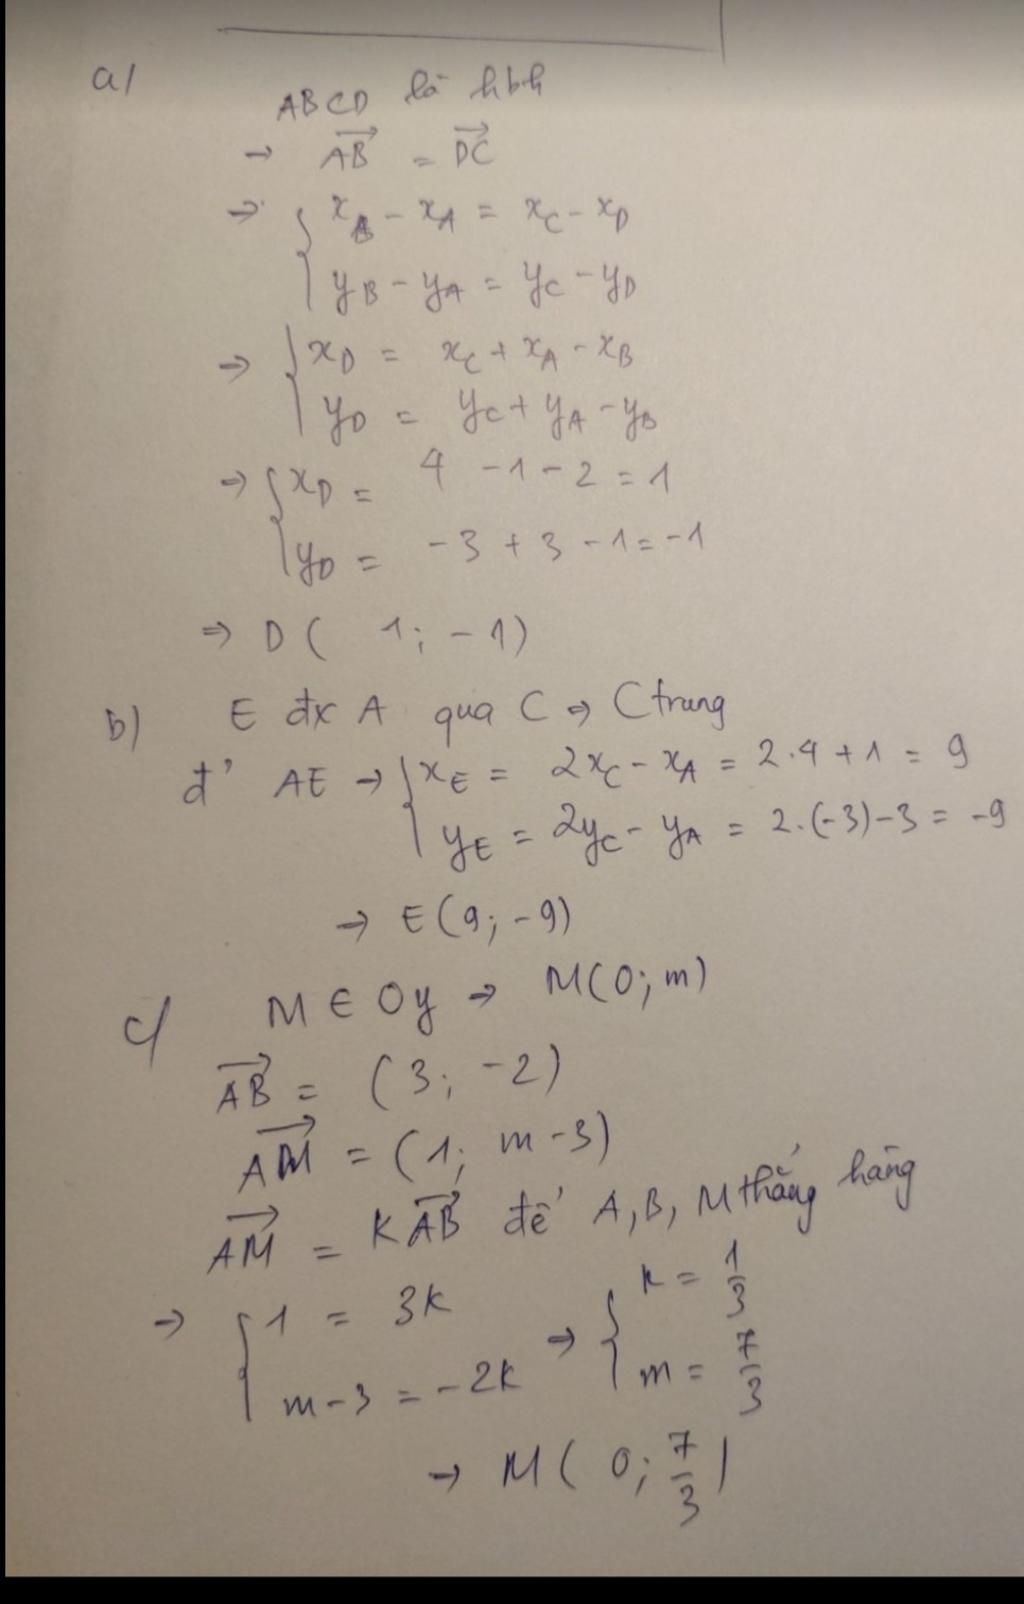 a/
ABCD là hbh
→ \overrightarrow{AB} = \overrightarrow{DC}
→ { x_B - x_A = x_C - x_D
y_B - y_A = y_C - y_D
→ { x_D = x_C + x_A - x_B
y_D = y_C + y_A - y_B
→ { x_D = 4 - 1 - 2 = 1
y_D = -3 + 3 - 1 = -1
⇒ D( 1; -1)
b) E đx A qua C → C trung
đ' AE → { x_E = 2x_C - x_A = 2.4 + 1 = 9
y_E = 2y_C - y_A = 2.(-3)-3 = -9
→ E(9; -9)
c/ M ∈ Oy → M(0; m)
\overrightarrow{AB} = (3; -2)
\overrightarrow{AM} = (1; m-3)
\overrightarrow{AM} = K\overrightarrow{AB} để A, B, M thẳng hàng
→ { 1 = 3K → { K = 1/3
m-3 = -2K m = 7/3
→ M( 0; 7/3 )